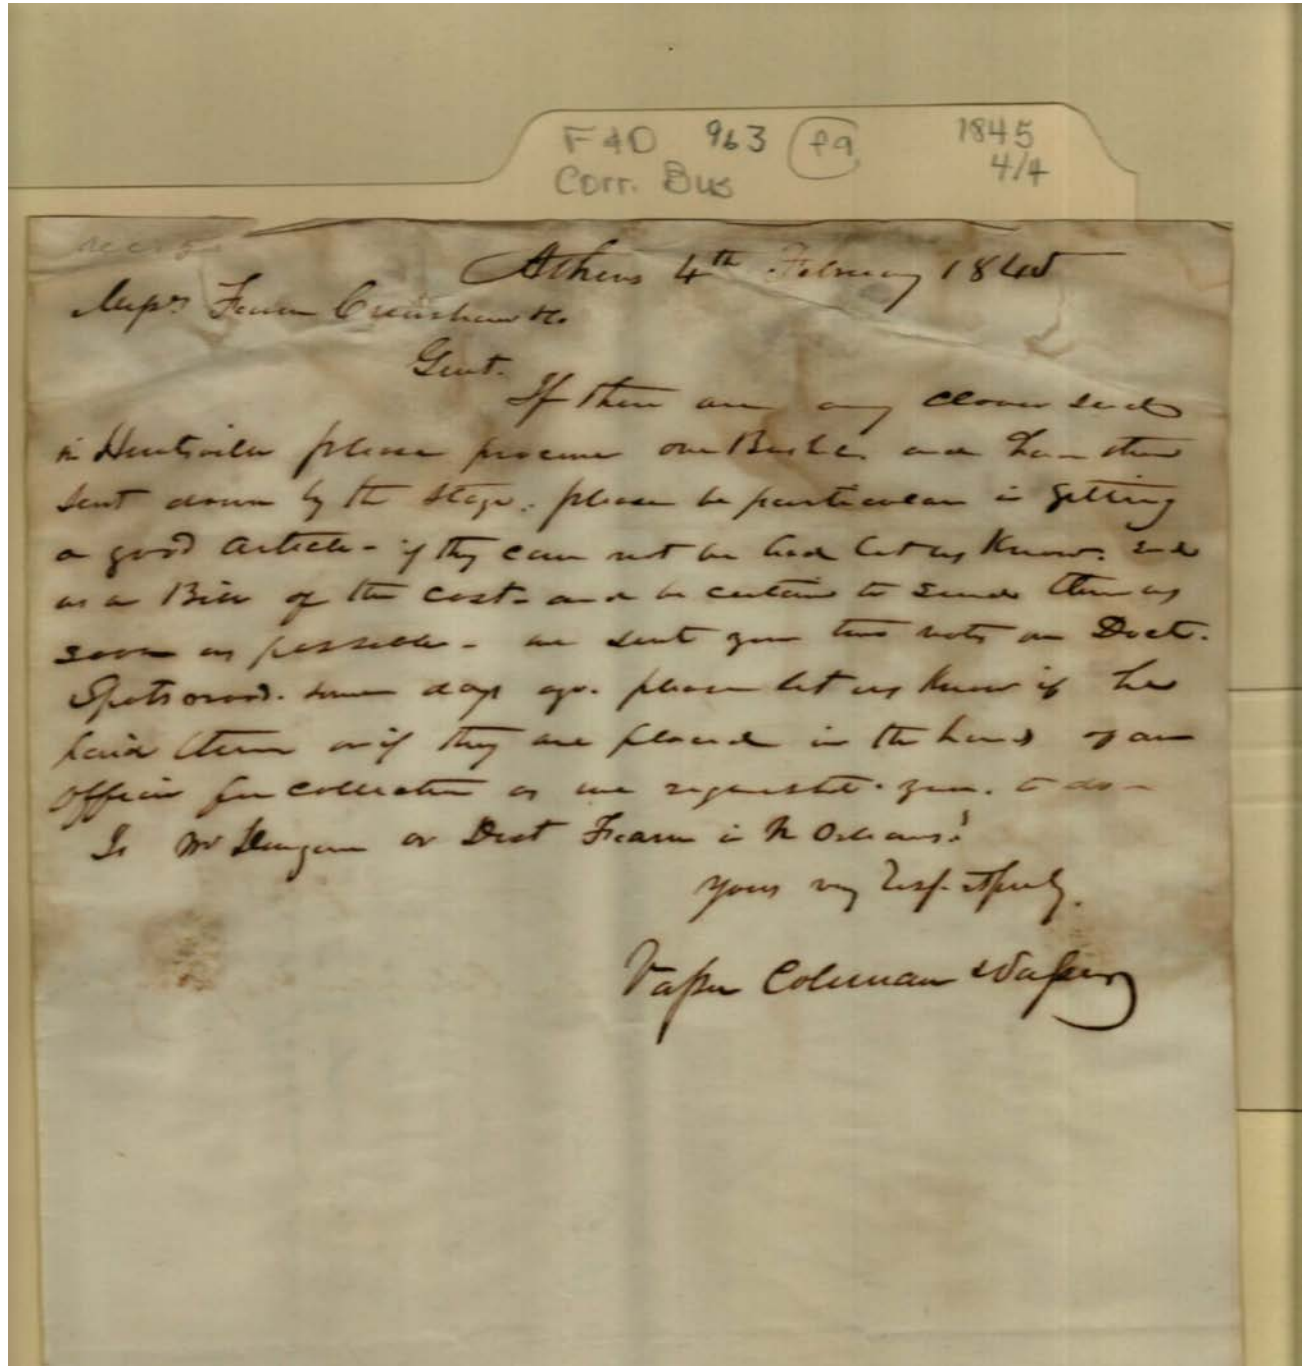 F & D 963 f9 1845
Corr. Bus 4/4
Athens 4th February 1845
Messrs Fearn Crenshaw & Co.
Gent.
If there are any clover seed
in Huntsville please procure one Bushel and have them
sent down by the stage. please be particular in getting
a good article - if they can not be had let us know. send
us a Bill of the cost - and be certain to send them as
soon as possible - we sent you two notes on Doct.
Spotswood. some days ago. please let us know if he
paid them or if they are placed in the hands of an
officer for collection as we requested. you. to do -
Is Mr or Doct Fearn in N Orleans?
yours very respectfully.
Vasser Coleman & Vasser